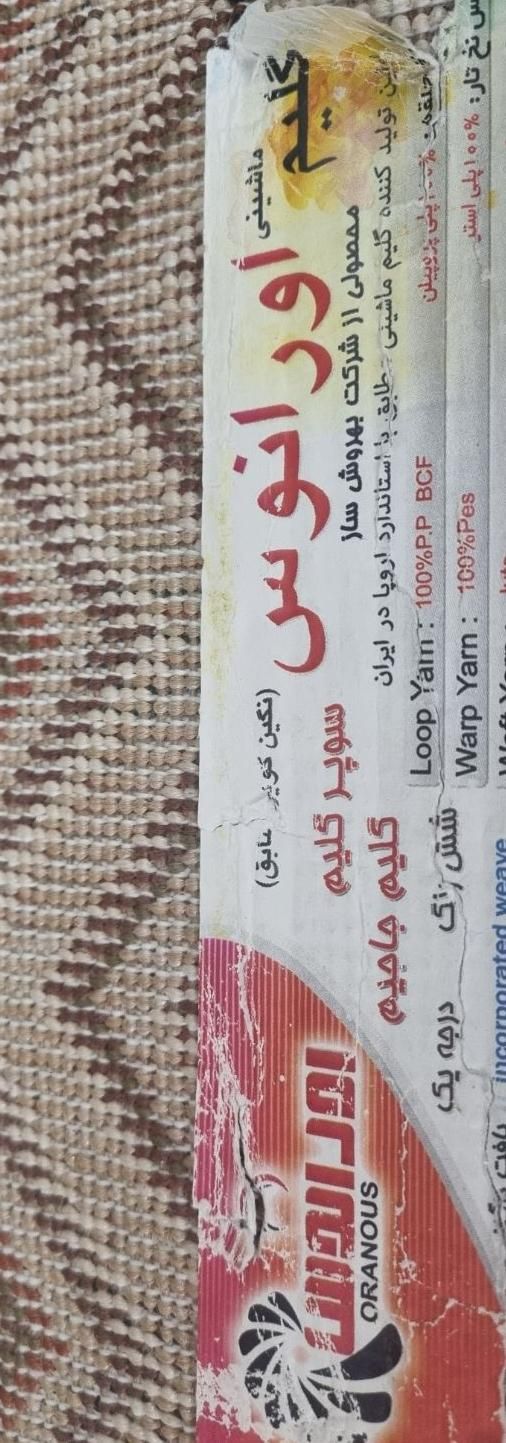 گلیم
ماشینی
اورانوس
(نگین کویر سابق)
محصولی از شرکت بهروش ساز
تولید کننده گلیم ماشینی مطابق با استاندارد اروپا در ایران
سوپر گلیم
گلیم جاجیم
شش رنگ درجه یک
۱۰۰% پلی پروپیلن
Loop Yarn : 100%P.P BCF
نخ تار: ۱۰۰% پلی استر
Warp Yarn : 100%Pes
incorporated weave
اورانوس
ORANOUS